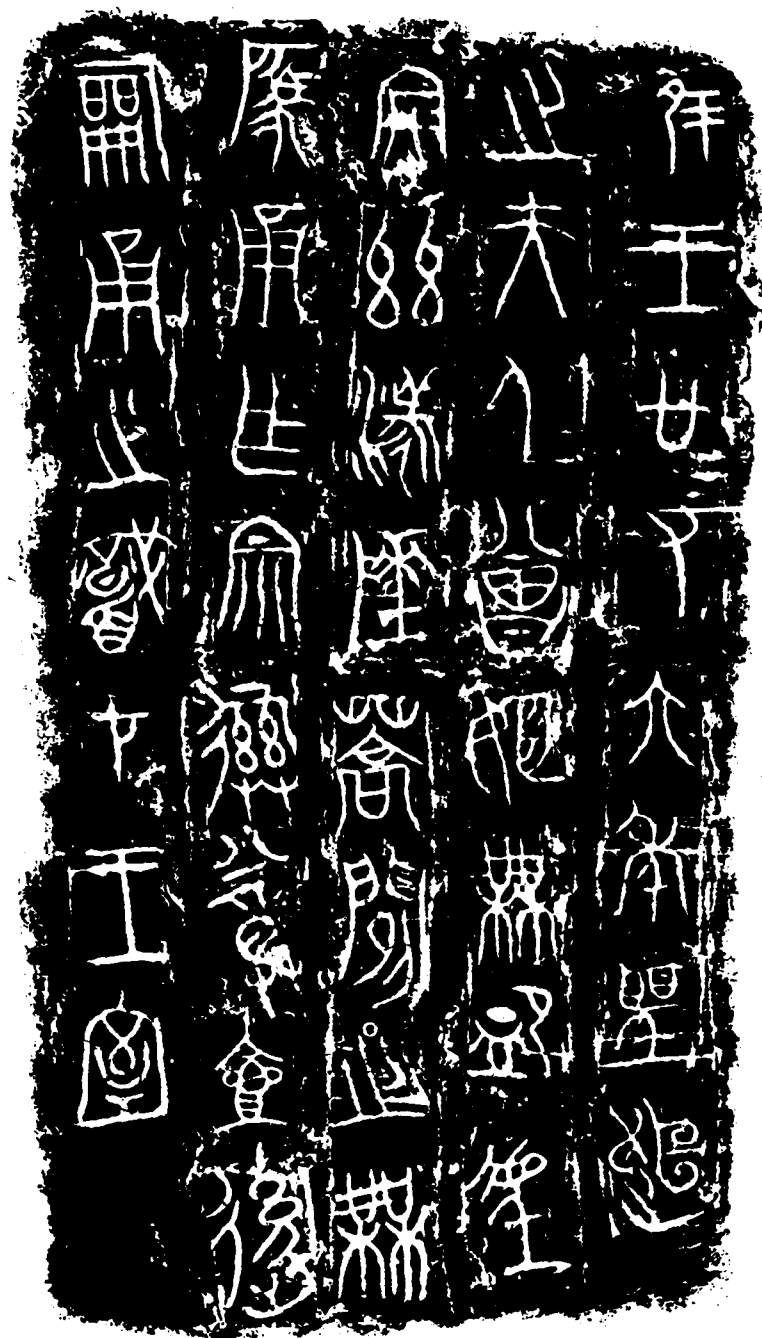 隹王廿又六年聖趄
之夫人曾姬無卹虗
宅茲漾陵蒿閒之無
匹甬乍宗彝尊壺後
嗣甬之職才王室